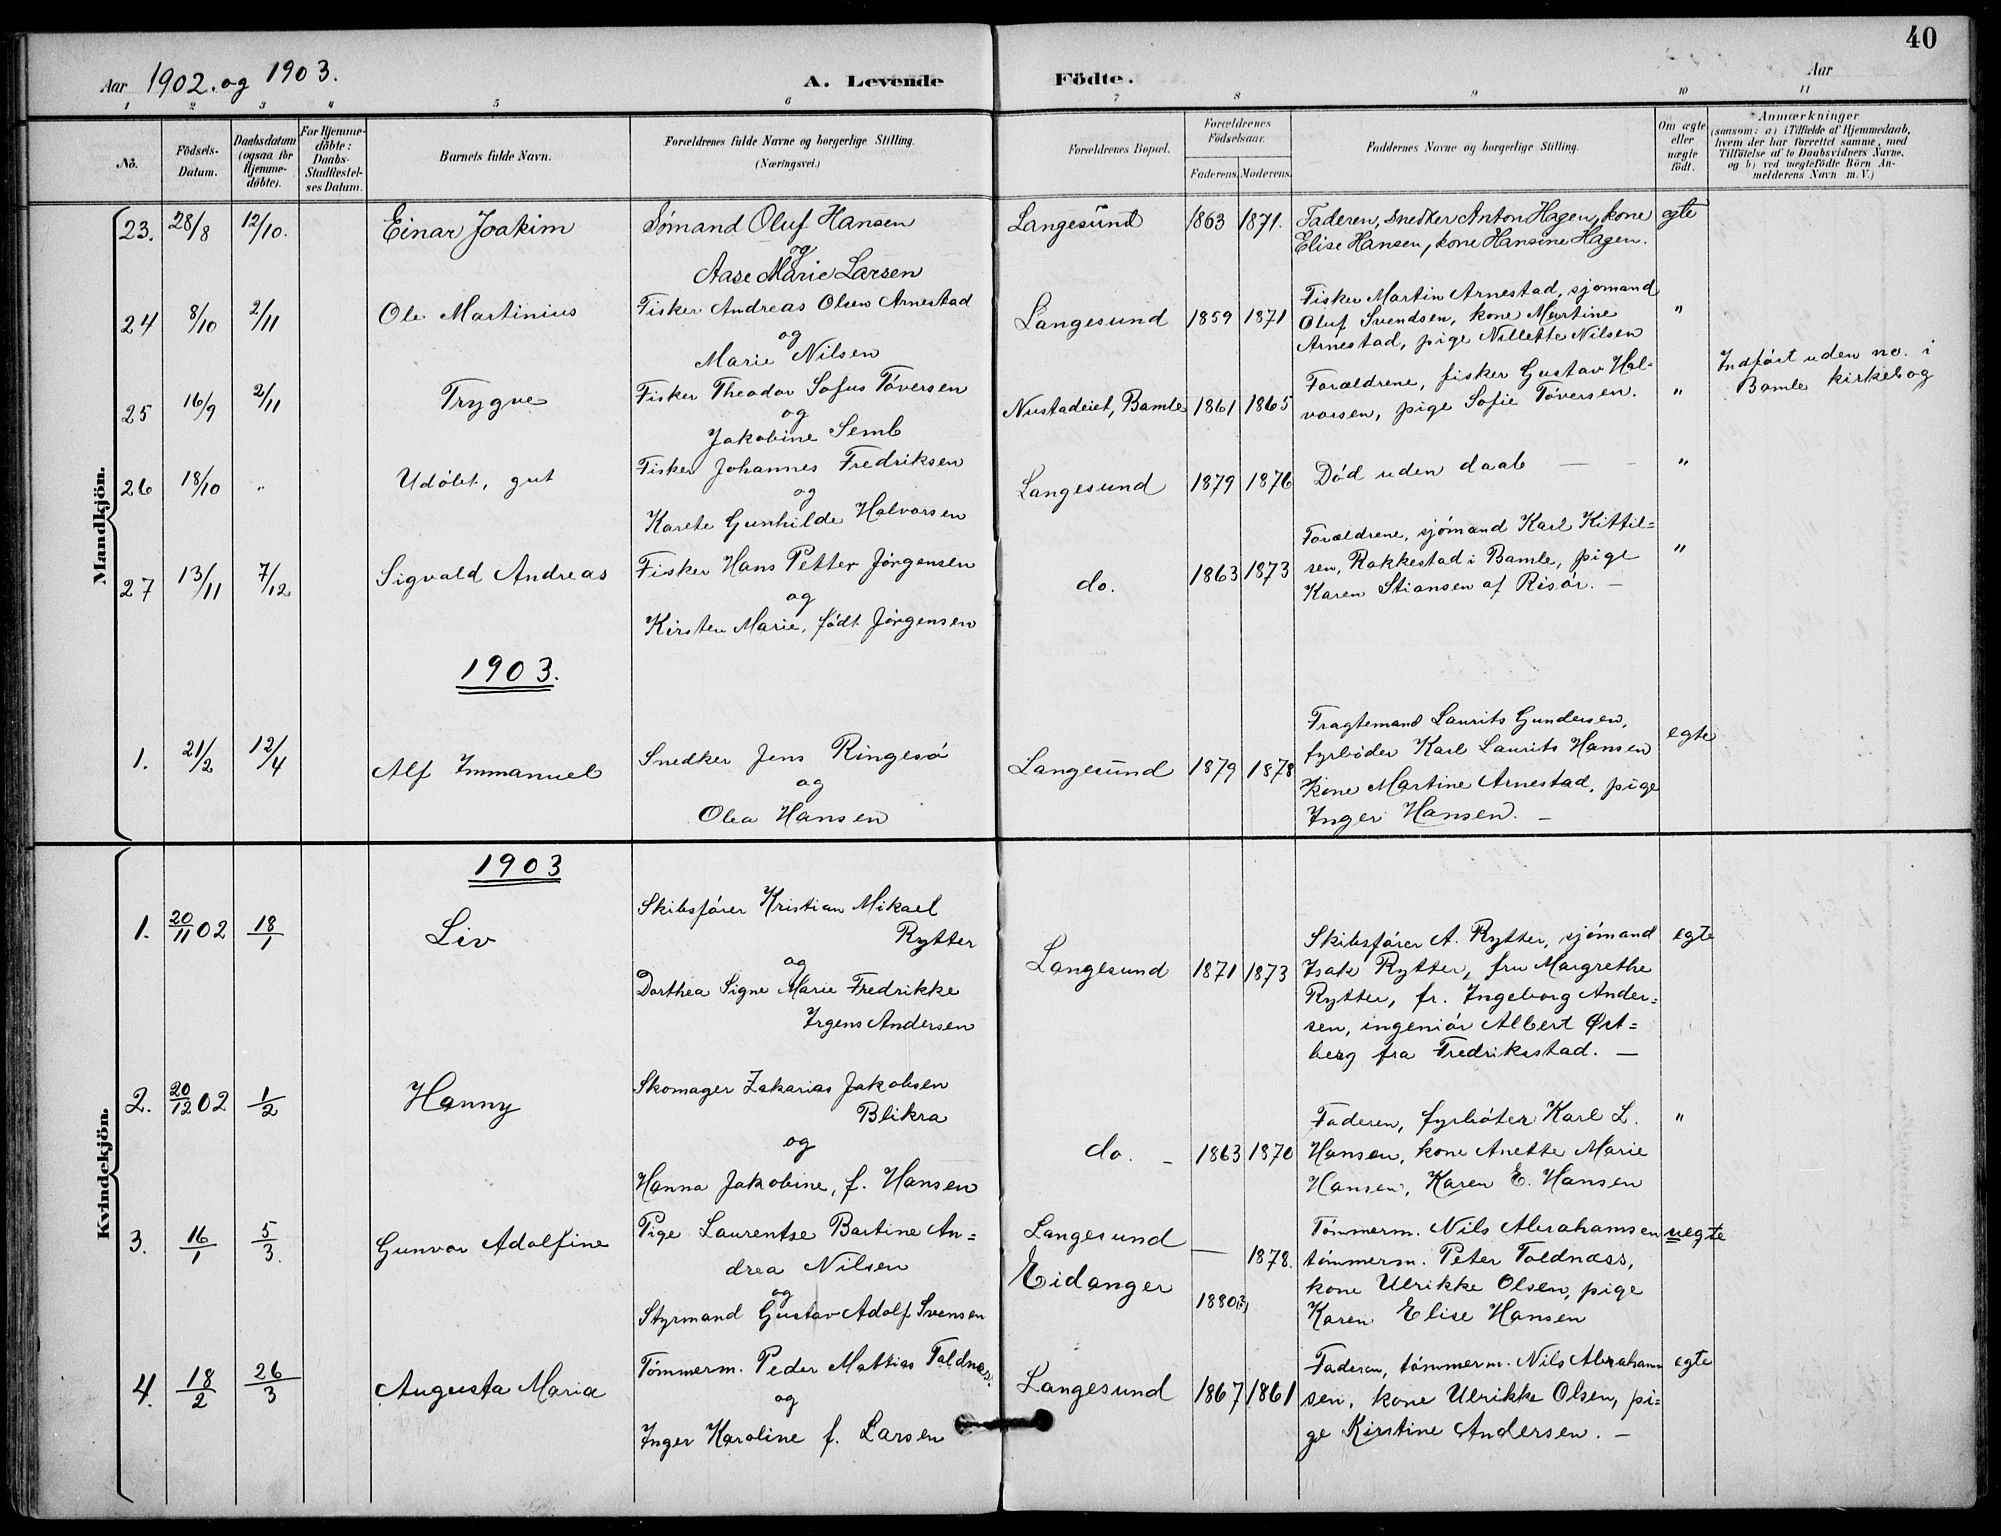 40
Aar 1902. og 1903. A. Levende Födte. Aar
1 2 3 4 5 6 7 8 9 10 11
No. Födsels-Datum. Daabsdatum (ogsaa for Hjemmedöbte). For Hjemmedöbte: Daabs-Stadfæstelses Datum. Barnets fulde Navn. Forældrenes fulde Navne og borgerlige Stilling. (Næringsvei.) Forældrenes Bopæl. Forældrenes Födselsaar. Faderens. Moderens. Faddernes Navne og borgerlige Stilling. Om ægte eller uægte födt. Anmærkninger
(saasom: a) i Tilfælde af Hjemmedaab,
hvem der har forrettet samme, med
Tilföielse af to Daabsvidners Navne,
og b) ved uægtefödte Börn Anmelderens Navn m. V.)
Mandkjön.
23. 28/8 12/10. Einar Joakim Sømand Oluf Hansen Langesund 1863 1871. Faderen, snedker Anton Hagen, kone egte
og Elise Hansen, kone Hansine Hagen.
Aase Marie Larsen
24 8/10 2/11 Ole Martinius Fisker Andreas Olsen Arnestad Langesund 1859 1871 Fisker Martin Arnestad, sjømand "
og Oluf Svendsen, kone Martine
Marie Nilsen Arnestad, pige Nillette Nilsen
25 16/9 2/11 Trygve Fisker Theodor Sofus Tóversen Nustadeiet, Bamle 1861 1865 Forældrene, fisker Gustav Hal- " Indført uden no. i
og vorsen, pige Sofie Tóversen. Bamle kirkebog
Jakobine Semb
26 18/10 " Udóbt, gut Fisker Johannes Fredriksen Langesund 1879 1876 Død uden daab — - "
og
Karete Gunhilde Halvorsen
27 13/11 7/12 Sigvald Andreas Fisker Hans Petter Jørgensen do. 1863 1873 Forældrene, sjómand Karl Kittil= "
og sen, Rakkestad i Bamle, pige
Kirsten Marie, født Jørgensen Karen Stiansen af Risór. —
1903.
1. 21/2 12/4 Alf Immanuel Snedker Jens Ringesó Langesund 1879 1878 Fragtemand Laurits Gundersen, egte
og fyrbóder Karl Laurits Hansen
Olea Hansen kone Martine Arnestad, pige
Inger Hansen. —
Kvindekjön.
1903
1. 20/11 02 18/1 Liv Skibsfórer Kristian Mikael
Rytter Langesund 1871 1873 Skibsfórer A. Rytter, sjómand egte
og Isak Rytter, fru Margrethe
Dorthea Signe Marie Fredrikke Rytter, fr. Ingeborg Ander=
Irgens Andersen sen, ingeniór Albert Øst=
berg fra Fredriksstad. —
2. 20/12 02 1/2 Hanny Skomager Zakarias Jakobsen
Blikra do. - 1863 1870 Faderen, fyrbóter Karl L. "
og Hansen, kone Anette Marie
Hanna Jakobine, f. Hansen Hansen, Karen E. Hansen
3. 16/1 5/3. Gunvor Adolfine Pige Laurentse Bartine An= Langesund — 1878. Tømmerm. Nils Abrahamsen uegte
drea Nilsen Eidanger tømmerm. Peter Toldnæss,
og kone Ulrikke Olsen, pige
Styrmand Gustav Adolf Svensen 1880 Karen Elise Hansen
4. 18/2 26/3 Augusta Maria Tómmerm. Peder Mattias Toldnæs. Langesund 1867 1861 Faderen, tómmerm. Nils Abraham egte
og sen, kone Ulrikke Olsen, pi=
Inger Karoline f. Larsen ge Kirstine Andersen. —